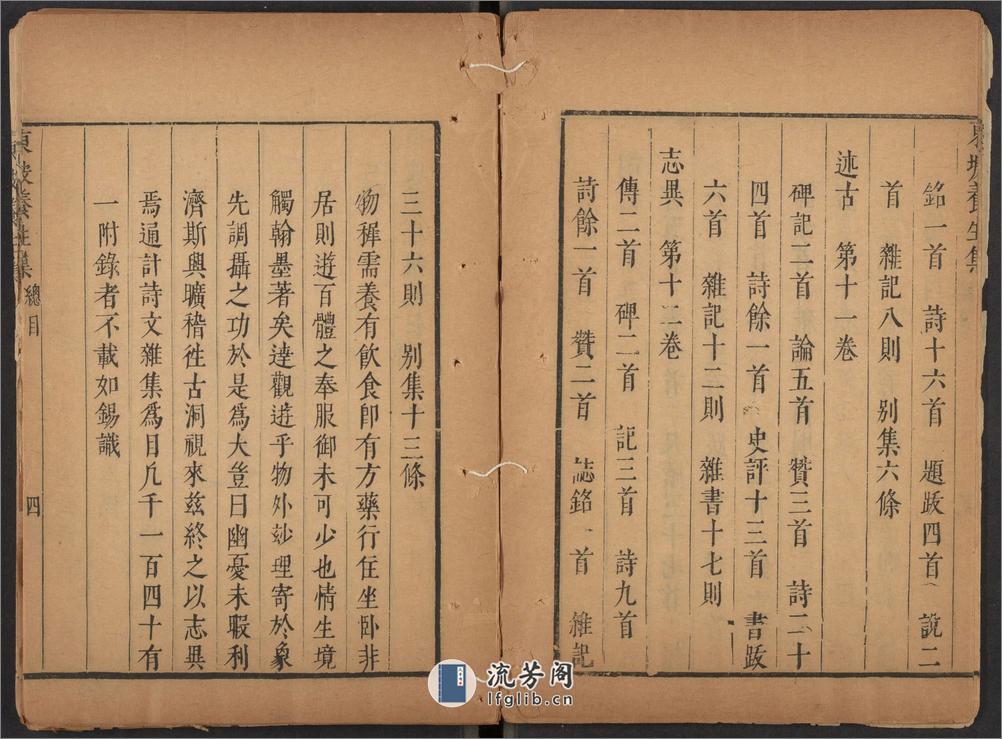 東坡養生集
銘一首 詩十六首 題跋四首 說二
首 雜記八則 別集六條
述古 第十一卷
碑記二首 論五首 贊三首 詩二十
四首 詩餘一首 史評十三首 書跋
六首 雜記十二則 雜書十七則
志異 第十二卷
傳二首 碑二首 記三首 詩九首
詩餘一首 贊二首 誌銘一首 雜記
三十六則 別集十三條
物穉需養有飲食即有方藥行住坐卧非
居則遊百體之奉服御未可少也情生境
觸翰墨著矣達觀遊乎物外玅理寄於象
先調攝之功於是爲大豈曰幽憂未暇利
濟斯與曠稽徃古洞視來茲終之以志異
焉通計詩文雜集爲目凡千一百四十有
一附錄者不載如錫識
東坡養生集 總目 四
流芳阁
lfglib.cn